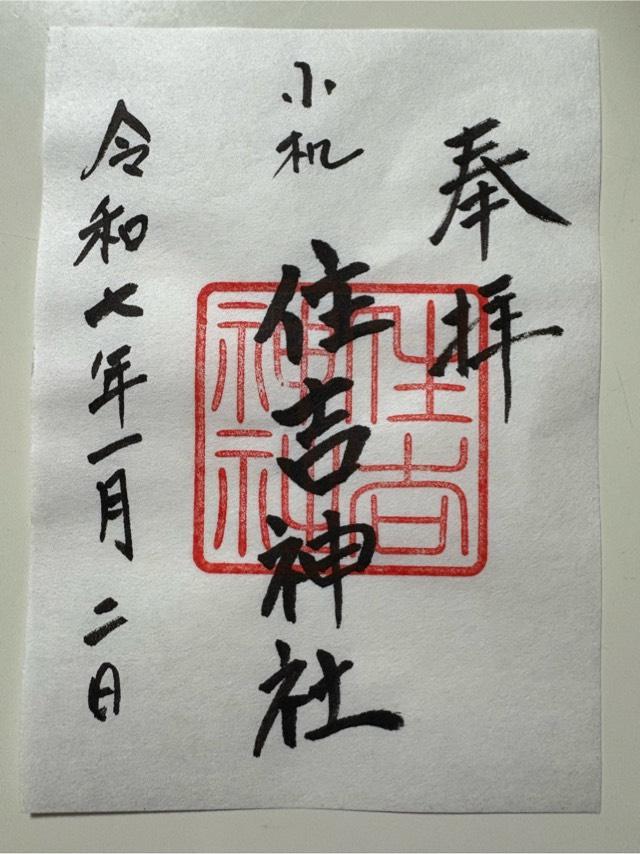 奉拝
小机
住吉神社
令和七年一月二日
住吉
神社